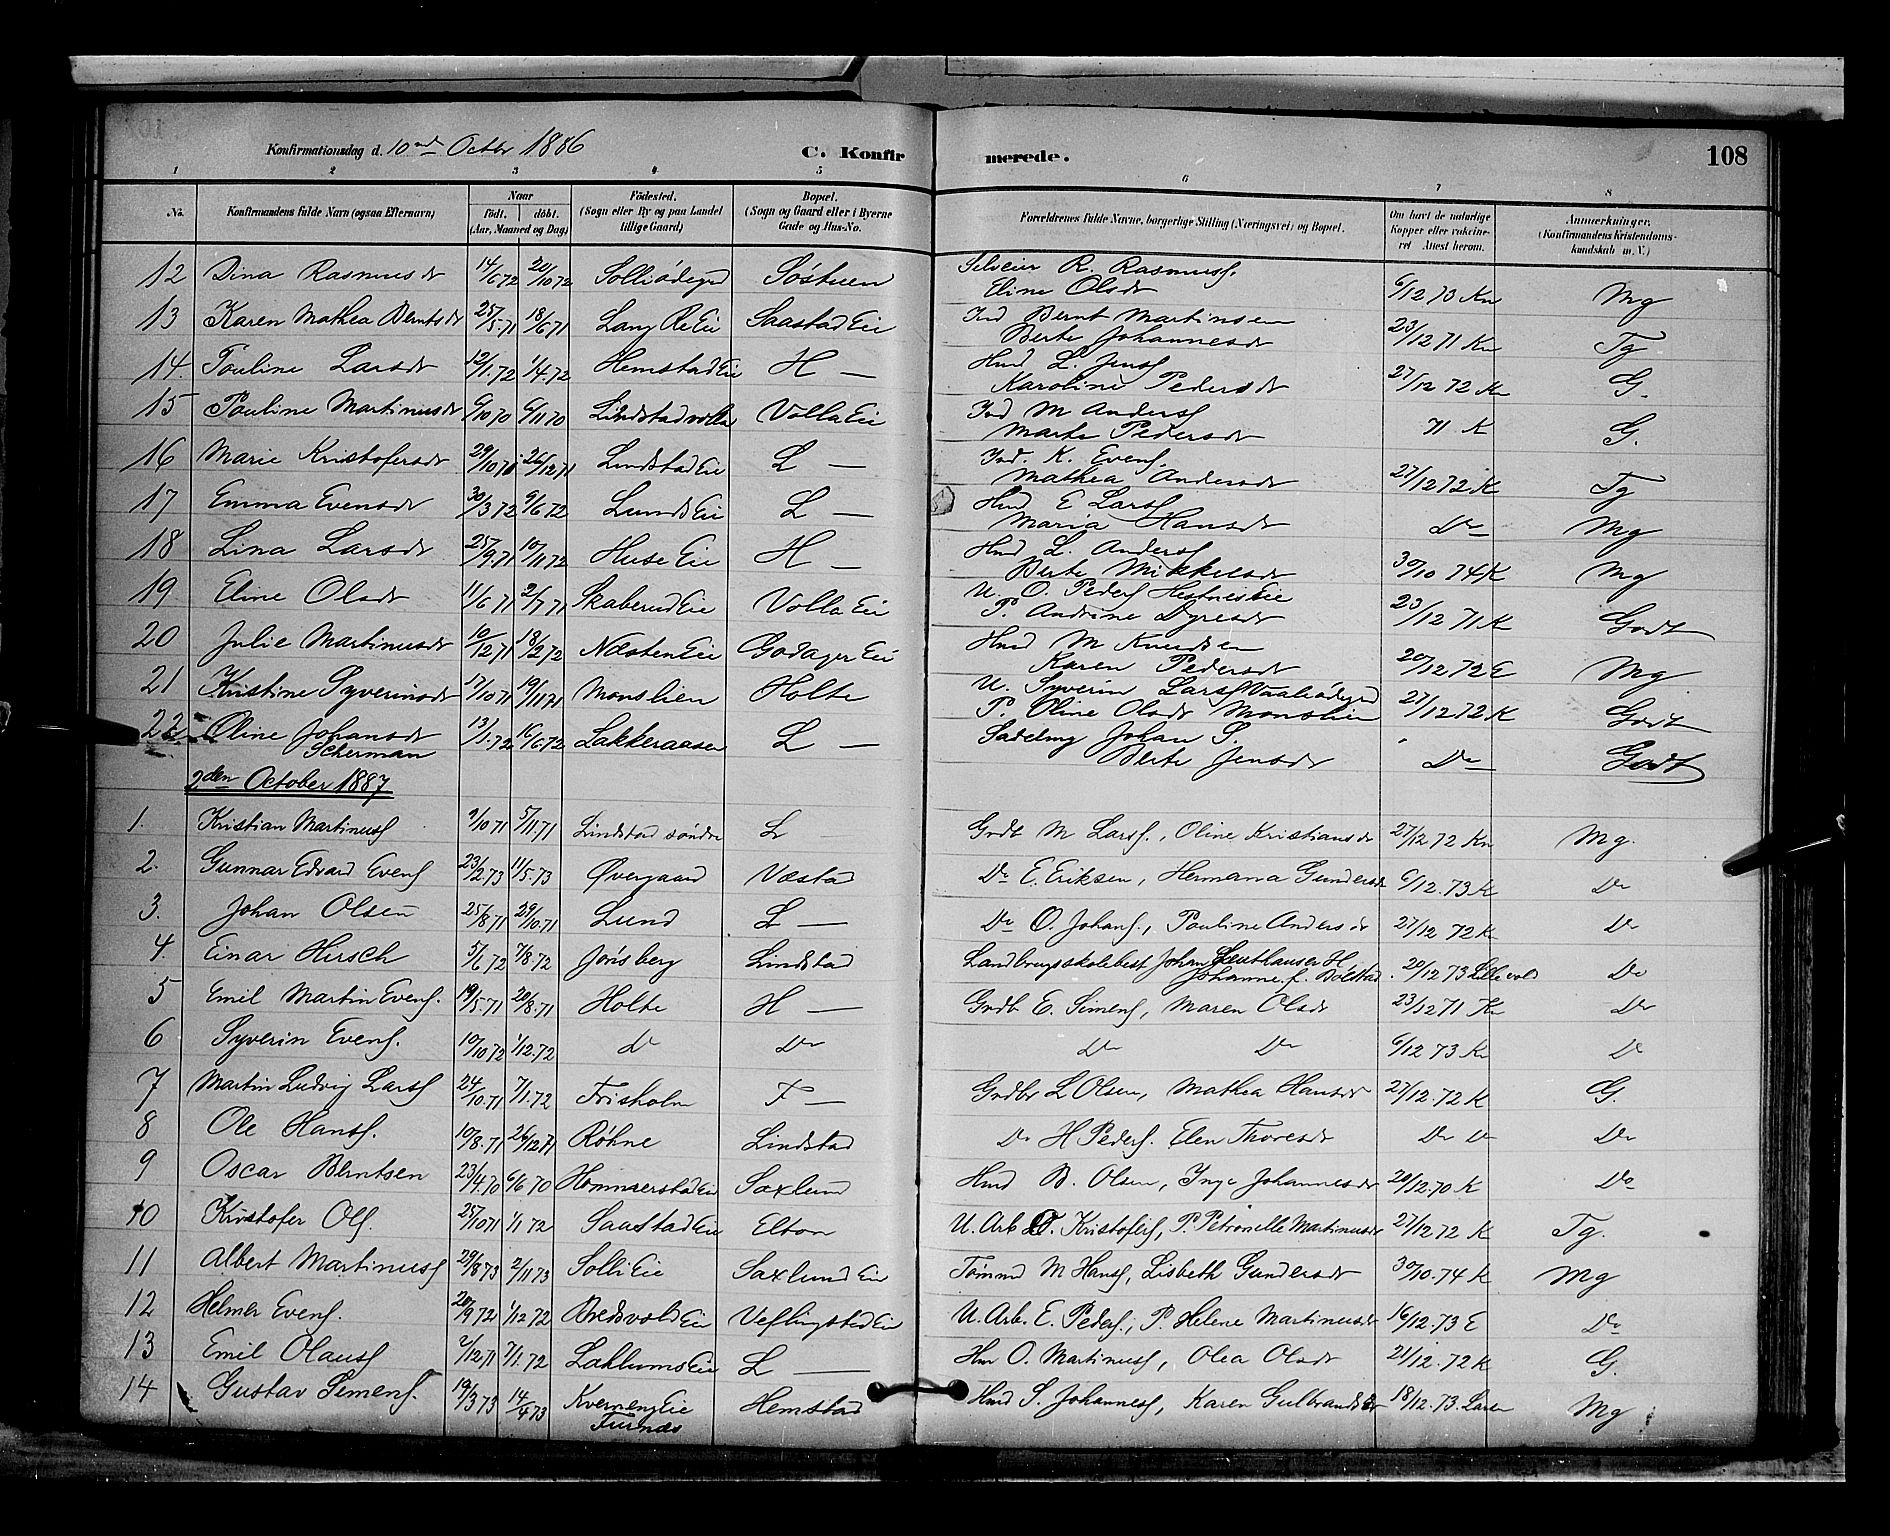 Konfirmationsdag d. 10nd Octbr 1886 C. Konfirmerede. 108
1 2 3 4 5 6 7 8
No. Konfirmandens fulde Navn (ogsaa Efternavn) Naar født. døbt. (Aar, Maaned og Dag) Födested. (Sogn eller By og paa Landet tillige Gaard) Bopæl. (Sogn og Gaard eller i Byerne Gade og Hus-No. Forældrenes fulde Navne, borgerlige Stilling (Næringsvei) og Bopæl. Om havt de naturlige Kopper eller vakcineret Attest herom. Anmærkninger. (Konfirmandens Kristendomskundskab m. V.)
12 Dina Rasmusdr 14/6 72 20/10 72 Solliødegd Søstuen Selveier R. Rasmuss. Eline Olsdr 6/12 73 Kn Mg
13 Karen Mathea Berntsdr 25/5 71 18/6 71 Lang Re Eie Saastad Eie Ind Bernt Martinsen Berte Johannesdr 23/12 71 Kn Tg
14 Pauline Larsdr 12/1 72 1/4 72 Hemstad Eie H — Hmd L. Jens. Karoline Pedersdr 27/12 72 Kn G.
15 Pauline Martinusdr 6/10 70 6/11 70 Lindstadvolla Volla Eie Ind M Anders. Marte Pedersdr 71 K G.
16 Marie Kristofersdr 29/10 71 26/12 71 Lindstad Eie L — Ind. K. Evens. Mathea Andersdr 27/12 72 K Tg
17 Emma Evensdr 30/3 72 9/6 72 Lunds Eie L — Hmd E Lars. Maria Hansdr Do Mg
18 Lina Larsdr 25/9 71 10/11 72 Huse Eie H — Hmd L. Anders. Berte Mikkelsdr 30/10 74 K Mg
19 Eline Olsdr 11/6 71 2/7 71 Skaberud Eie Volla Eie U. O. Peders. Hestnes Eie P. Andrine Dyresdr 23/12 71 K Godt
20 Julie Martinusdr 10/12 71 18/2 72 Næsten Eie Godager Eie Hmd M Knudsen Karen Pedersdr 20/12 72 E Mg
21 Kristine Syverinsdr 17/10 71 19/11 71 Monslien Holte U. Syverin Lars. Vaaliødegd P. Oline Olsdr Monslien 27/12 72 K Godt
22 Oline Johansdr Scherman 13/1 72 16/6 72 Lakkeraasen L — Sadelmg Johan S Berte Jensdr Do Godt
2den October 1887
1. Kristian Martinuss. 9/10 71 5/11 71 Lindstad søndre L — Grdb M Lars., Oline Kristiansdr 27/12 72 Kn Mg.
2. Gunnar Edvard Evens. 23/2 73 11/5 73 Øvergaard Væstad Do E. Eriksen, Hermana Gundersdr 6/12. 73 K Do
3. Johan Olsen 25/8 71 29/10 71 Lund L — Do O. Johans., Pauline Andersdr 27/12 72 Kn Do
4. Einar Hirsch 5/6 72 7/8. 72 Jønsberg Lindstad Landbrugsskolebest Johan Leuthauser H Johanne f. Bolstad. 20/12 73 Lillevold Do
5 Emil Martin Evens. 19/5 71 20/8 71 Holte H — Grdb E. Simens, Maren Olsdr 23/12 71 Kn Do
6 Syverin Evens. 10/10 72 1/12. 72 do Do Do Do 6/12 73 Kn Do
7 Martin Ludvig Lars. 24/10 71 7/1. 72 Frisholm F — Grdbr L Olsen, Mathea Hansdr 27/12. 72 K G.
8 Ole Hans. 10/8 71 26/12 71 Røhne Lindstad Do H Peders. Elen Thoresdr Do Do Do
9 Oscar Berntsen 23/4 70 6/6 70 Hommerstad Eie Saxlund Hmd B. Olsen, Inge Johannesdr 20/12. 70 K Do
10 Kristofer Ols. 25/10 71 1/1 72 Saastad Eie Elton U. Arb O. Kristofers., P. Petronelle Martinusdr 27/12 72 K Tg.
11 Albert Martinuss. 29/8 73 2/11 73 Solli Eie Saxlund Eie Tømmd M Hans., Lisbeth Gundersdr 30/10. 74 K Mg
12 Helmer Evens. 20/9 72 1/12 72 Bredsvold Eie Veflingstad Eie U. Arb. E. Peders., P. Helene Martinusdr 16/12. 73 E Do
13 Emil Olauss. 2/12 71 7/1. 72 Laklums Eie L — Hm O. Martinuss., Olea Olsdr 21/12. 72 K G.
14 Gustav Simens. 19/3 73 14/4 73 Kverneng Eie Furnæs Hemstad Hmd S. Johanness., Karen Gulbrandsdr 18/12. 73. Lasen Mg